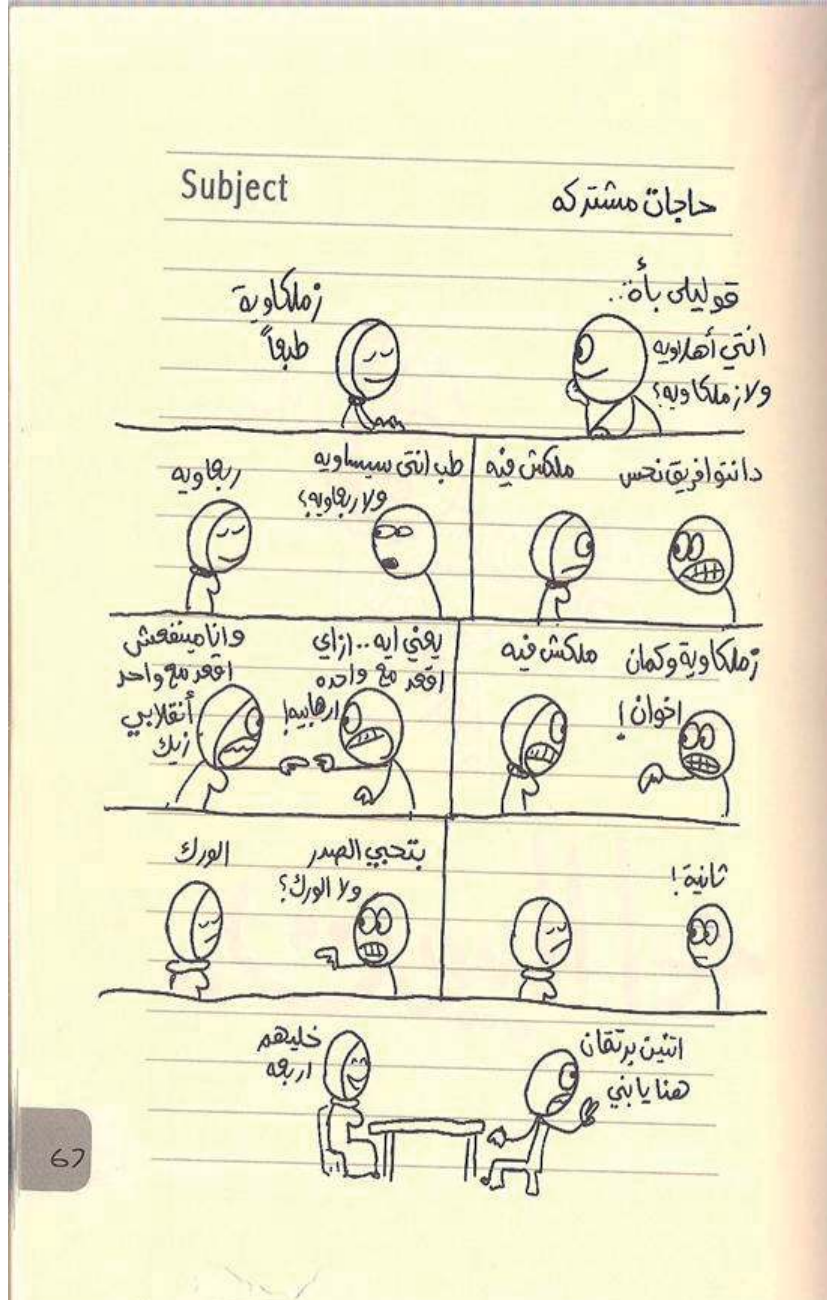 Subject
حاجات مشتركه
قوليلى بأة..
انتي أهلاويه
ولا زملكاويه؟
زملكاوية
طبعاً
دانتوا فريق نحس
ملكش فيه
طب انتى سيساويه
ولا ربعاويه؟
ربعاويه
زملكاوية وكمان
اخوان!
ملكش فيه
يعني ايه.. ازاي
اقعد مع واحده
ارهابيه!
وانا مينفعش
اقعد مع واحد
أنقلابي
زيك
ثانية!
بتحبي الصدر
ولا الورك؟
الورك
اتنين برتقان
هنا يا بني
خليهم
اربعه
67